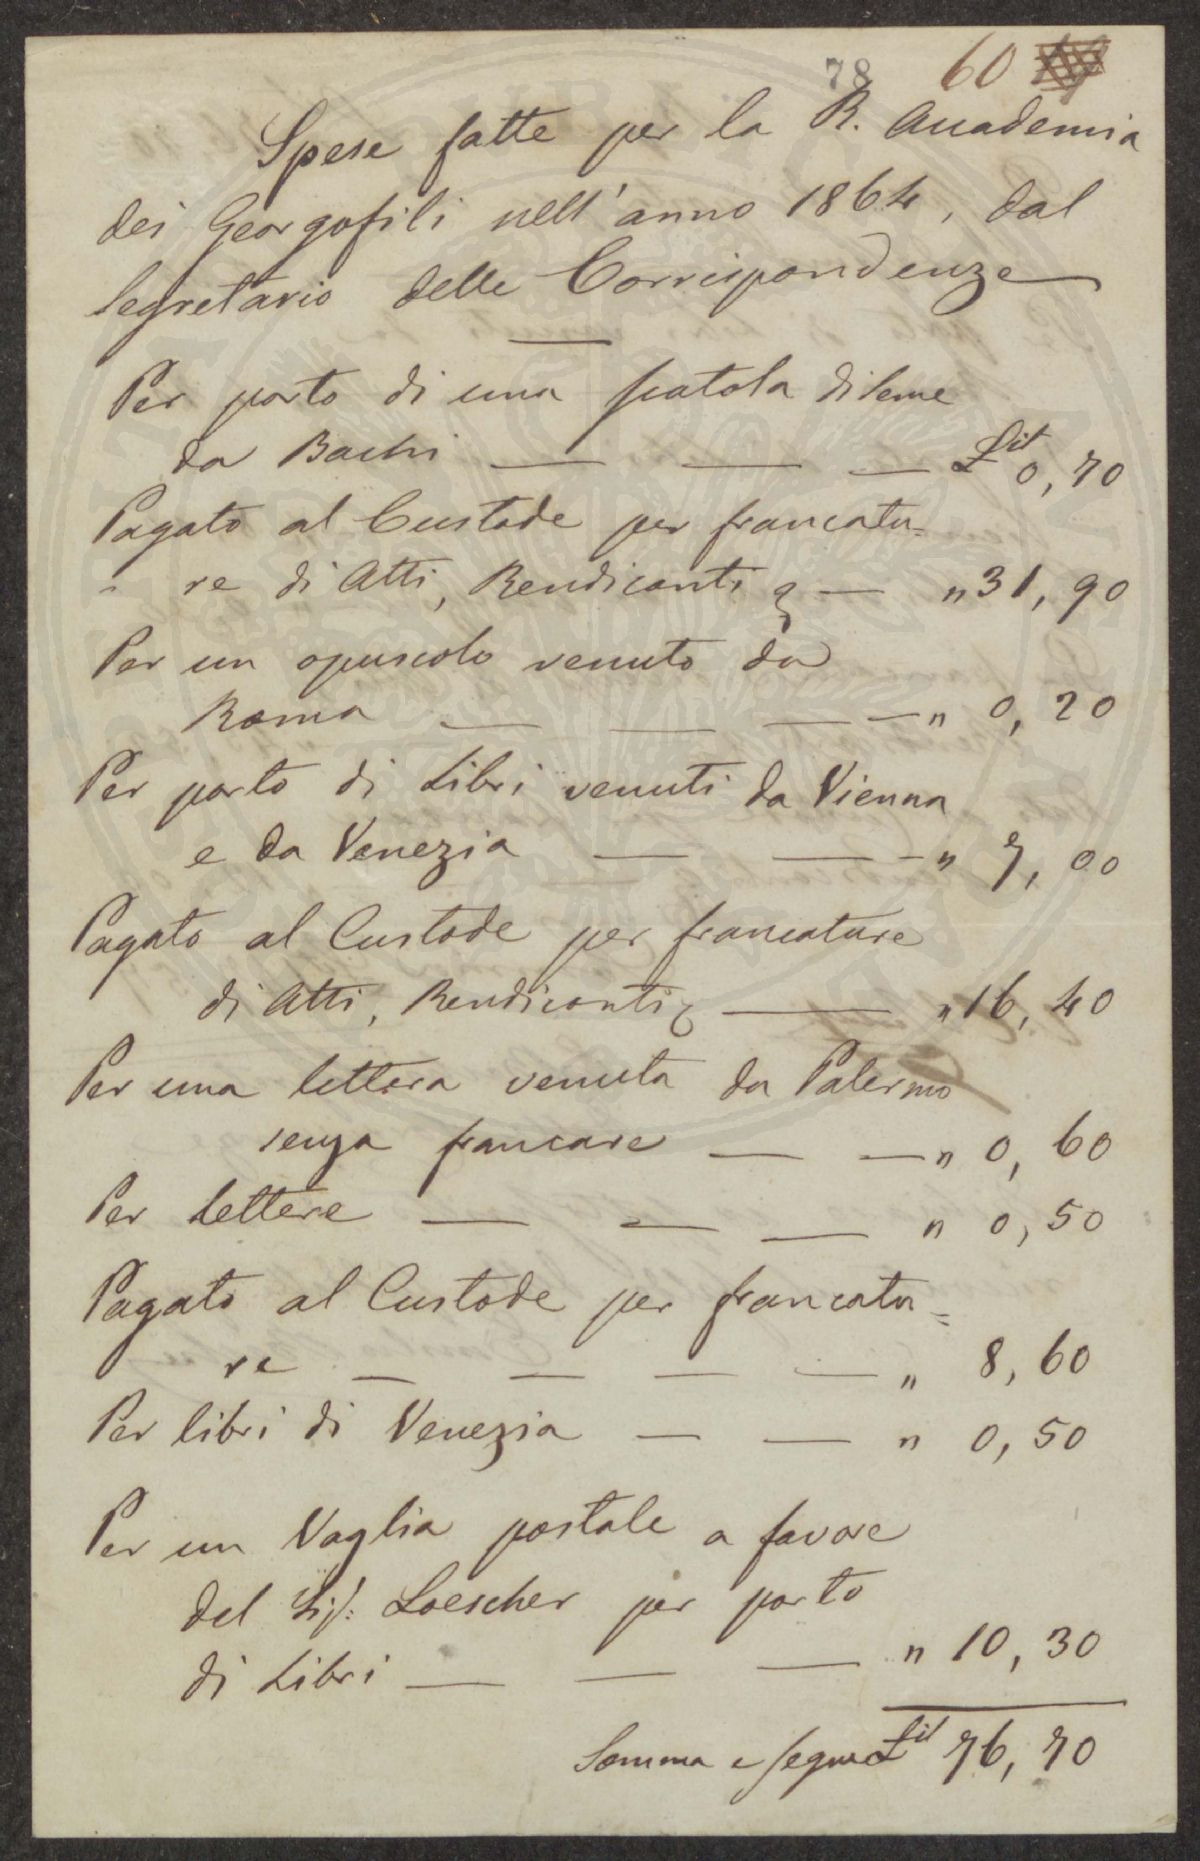 78 60
Spese fatte per la R. Accademia
dei Georgofili nell'anno 1864, dal
Segretario delle Corrispondenze
Per porto di una scatola di seme
da Bachi — — — £it 0,70
Pagato al Custode per francatu=
re di Atti, Rendiconti &c — " 31,90
Per un opuscolo venuto da
Roma — — — — " 0,20
Per porto di Libri venuti da Vienna
e da Venezia — — — " 7,00
Pagato al Custode per francature
di Atti, Rendiconti &c — " 16,40
Per una lettera venuta da Palermo
senza francare — — " 0,60
Per Lettere — — — " 0,50
Pagato al Custode per francatu=
re — — — — " 8,60
Per libri di Venezia — — " 0,50
Per un Vaglia postale a favore
del Sig: Loescher per porto
di Libri — — — " 10,30
Somma e segue £it 76,70